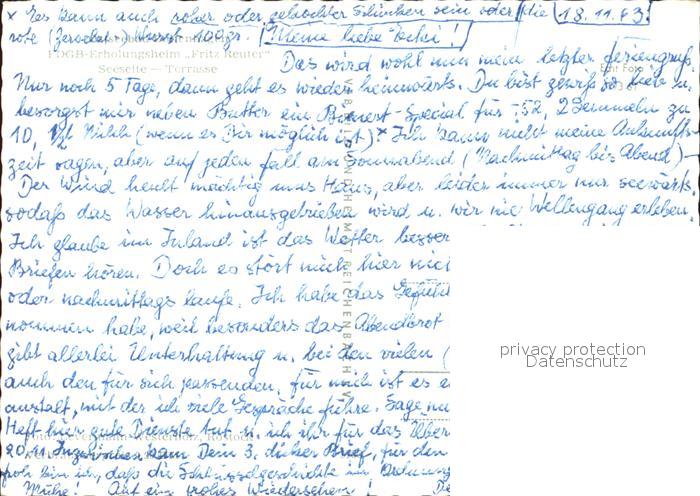 x Es kann auch roher oder gekochter Schinken sein oder die
18.11.63.
rote (Zervelat-) Wurst 100 gr. Meine liebe !
FDGB-Erholungsheim „Fritz Reuter"
Seeseite — Terrasse
Echt Foto
Das wird wohl nun mein letzter Feriengruß.
Nur noch 5 Tage, dann geht es wieder heimwärts. Du bist gewiß so lieb u.
besorgst mir neben Butter ein Special für -,52, 2 Semmeln zu
10, 1/2 Milch (wenn es Dir möglich ist).x Ich kann nicht meine Ankunfts-
zeit sagen, aber auf jeden Fall am Sonnabend (Nachmittag bis Abend) —
Der Wind heult mächtig ums Haus, aber leider immer nur seewärts,
sodaß das Wasser hinausgetrieben wird u. wir nie Wellengang erleben.
Ich glaube im Inland ist das Wetter besser
Briefen hören. Doch es stört mich hier nic
oder nachmittags laufe. Ich habe das Gefühl
nommen habe, weil besonders das Abendbrot
gibt allerlei Unterhaltung u. bei den vielen (
auch den für sich passenden, für mich ist es e
anstalt, mit der ich viele Gespräche führe. Sage
Heft hier gute Dienste tut u. ich ihr für das Über
20.11. Inzwischen kam Dein 3. dicker Brief, für den
froh bin ich, daß die Schlüsselgeschichte in Ordnung
Mühe! Auf ein frohes Wiedersehen!
VEB BILD UND HEIMAT REICHENBACH I. V.
privacy protection
Datenschutz